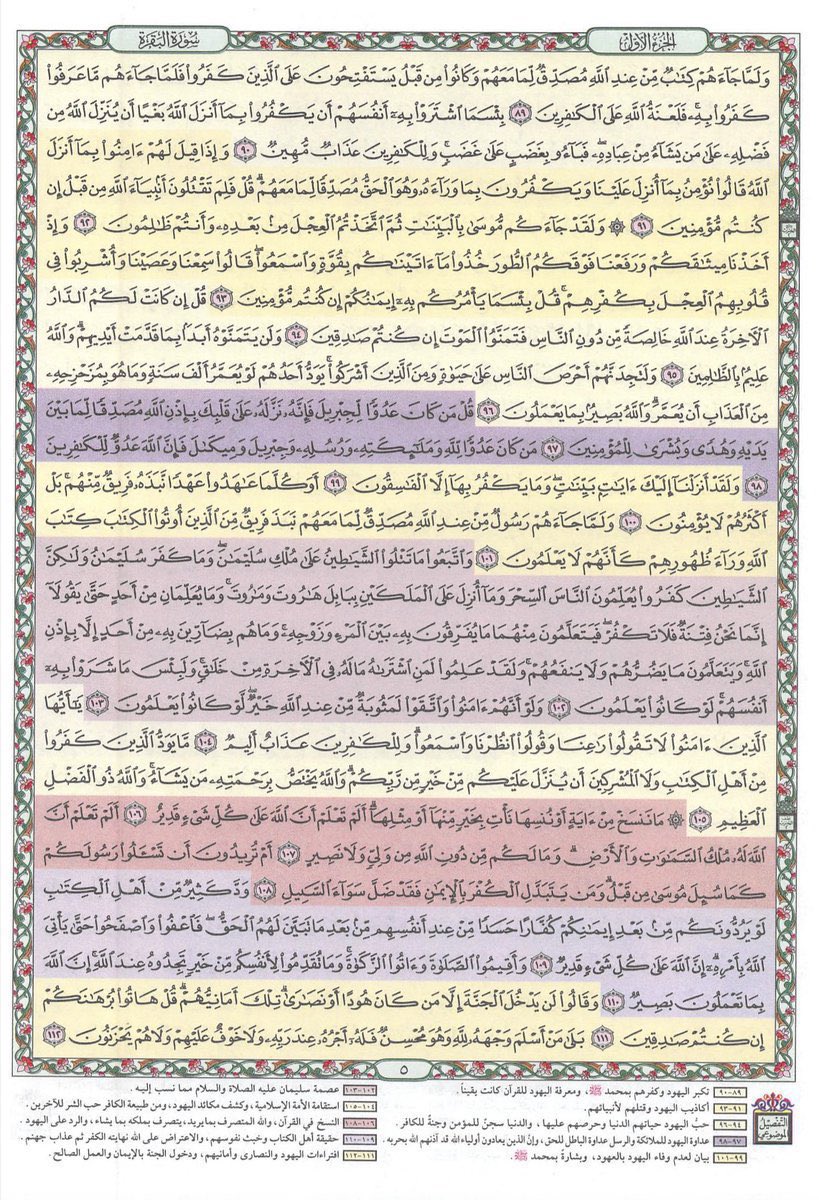 الجزء الأول
سورة البقرة
وَلَمَّا جَآءَهُمْ كِتَٰبٌ مِّنْ عِندِ ٱللَّهِ مُصَدِّقٌ لِّمَا مَعَهُمْ وَكَانُوا۟ مِن قَبْلُ يَسْتَفْتِحُونَ عَلَى ٱلَّذِينَ كَفَرُوا۟ فَلَمَّا جَآءَهُم مَّا عَرَفُوا۟
كَفَرُوا۟ بِهِۦ ۚ فَلَعْنَةُ ٱللَّهِ عَلَى ٱلْكَٰفِرِينَ ٨٩ بِئْسَمَا ٱشْتَرَوْا۟ بِهِۦٓ أَنفُسَهُمْ أَن يَكْفُرُوا۟ بِمَآ أَنزَلَ ٱللَّهُ بَغْيًا أَن يُنَزِّلَ ٱللَّهُ مِن
فَضْلِهِۦ عَلَىٰ مَن يَشَآءُ مِنْ عِبَادِهِۦ ۖ فَبَآءُو بِغَضَبٍ عَلَىٰ غَضَبٍ ۚ وَلِلْكَٰفِرِينَ عَذَابٌ مُّهِينٌ ٩٠ وَإِذَا قِيلَ لَهُمْ ءَامِنُوا۟ بِمَآ أَنزَلَ
ٱللَّهُ قَالُوا۟ نُؤْمِنُ بِمَآ أُنزِلَ عَلَيْنَا وَيَكْفُرُونَ بِمَا وَرَآءَهُۥ وَهُوَ ٱلْحَقُّ مُصَدِّقًا لِّمَا مَعَهُمْ ۗ قُلْ فَلِمَ تَقْتُلُونَ أَنۢبِيَآءَ ٱللَّهِ مِن قَبْلُ إِن
كُنتُم مُّؤْمِنِينَ ٩١ ۞ وَلَقَدْ جَآءَكُم مُّوسَىٰ بِٱلْبَيِّنَٰتِ ثُمَّ ٱتَّخَذْتُمُ ٱلْعِجْلَ مِنۢ بَعْدِهِۦ وَأَنتُمْ ظَٰلِمُونَ ٩٢ وَإِذْ
أَخَذْنَا مِيثَٰقَكُمْ وَرَفَعْنَا فَوْقَكُمُ ٱلطُّورَ خُذُوا۟ مَآ ءَاتَيْنَٰكُم بِقُوَّةٍ وَٱسْمَعُوا۟ ۖ قَالُوا۟ سَمِعْنَا وَعَصَيْنَا وَأُشْرِبُوا۟ فِى
قُلُوبِهِمُ ٱلْعِجْلَ بِكُفْرِهِمْ ۚ قُلْ بِئْسَمَا يَأْمُرُكُم بِهِۦٓ إِيمَٰنُكُمْ إِن كُنتُم مُّؤْمِنِينَ ٩٣ قُلْ إِن كَانَتْ لَكُمُ ٱلدَّارُ
ٱلْءَاخِرَةُ عِندَ ٱللَّهِ خَالِصَةً مِّن دُونِ ٱلنَّاسِ فَتَمَنَّوُا۟ ٱلْمَوْتَ إِن كُنتُمْ صَٰدِقِينَ ٩٤ وَلَن يَتَمَنَّوْهُ أَبَدًۢا بِمَا قَدَّمَتْ أَيْدِيهِمْ ۗ وَٱللَّهُ
عَلِيمٌۢ بِٱلظَّٰلِمِينَ ٩٥ وَلَتَجِدَنَّهُمْ أَحْرَصَ ٱلنَّاسِ عَلَىٰ حَيَوٰةٍ وَمِنَ ٱلَّذِينَ أَشْرَكُوا۟ ۚ يَوَدُّ أَحَدُهُمْ لَوْ يُعَمَّرُ أَلْفَ سَنَةٍ وَمَا هُوَ بِمُزَحْزِحِهِۦ
مِنَ ٱلْعَذَابِ أَن يُعَمَّرَ ۗ وَٱللَّهُ بَصِيرٌۢ بِمَا يَعْمَلُونَ ٩٦ قُلْ مَن كَانَ عَدُوًّا لِّجِبْرِيلَ فَإِنَّهُۥ نَزَّلَهُۥ عَلَىٰ قَلْبِكَ بِإِذْنِ ٱللَّهِ مُصَدِّقًا لِّمَا بَيْنَ
يَدَيْهِ وَهُدًى وَبُشْرَىٰ لِلْمُؤْمِنِينَ ٩٧ مَن كَانَ عَدُوًّا لِّلَّهِ وَمَلَٰٓئِكَتِهِۦ وَرُسُلِهِۦ وَجِبْرِيلَ وَمِيكَىٰلَ فَإِنَّ ٱللَّهَ عَدُوٌّ لِّلْكَٰفِرِينَ
٩٨ وَلَقَدْ أَنزَلْنَآ إِلَيْكَ ءَايَٰتٍۭ بَيِّنَٰتٍ ۖ وَمَا يَكْفُرُ بِهَآ إِلَّا ٱلْفَٰسِقُونَ ٩٩ أَوَكُلَّمَا عَٰهَدُوا۟ عَهْدًا نَّبَذَهُۥ فَرِيقٌ مِّنْهُم ۚ بَلْ
أَكْثَرُهُمْ لَا يُؤْمِنُونَ ١٠٠ وَلَمَّا جَآءَهُمْ رَسُولٌ مِّنْ عِندِ ٱللَّهِ مُصَدِّقٌ لِّمَا مَعَهُمْ نَبَذَ فَرِيقٌ مِّنَ ٱلَّذِينَ أُوتُوا۟ ٱلْكِتَٰبَ كِتَٰبَ
ٱللَّهِ وَرَآءَ ظُهُورِهِمْ كَأَنَّهُمْ لَا يَعْلَمُونَ ١٠١ وَٱتَّبَعُوا۟ مَا تَتْلُوا۟ ٱلشَّيَٰطِينُ عَلَىٰ مُلْكِ سُلَيْمَٰنَ ۖ وَمَا كَفَرَ سُلَيْمَٰنُ وَلَٰكِنَّ
ٱلشَّيَٰطِينَ كَفَرُوا۟ يُعَلِّمُونَ ٱلنَّاسَ ٱلسِّحْرَ وَمَآ أُنزِلَ عَلَى ٱلْمَلَكَيْنِ بِبَابِلَ هَٰرُوتَ وَمَٰرُوتَ ۚ وَمَا يُعَلِّمَانِ مِنْ أَحَدٍ حَتَّىٰ يَقُولَآ
إِنَّمَا نَحْنُ فِتْنَةٌ فَلَا تَكْفُرْ ۖ فَيَتَعَلَّمُونَ مِنْهُمَا مَا يُفَرِّقُونَ بِهِۦ بَيْنَ ٱلْمَرْءِ وَزَوْجِهِۦ ۚ وَمَا هُم بِضَآرِّينَ بِهِۦ مِنْ أَحَدٍ إِلَّا بِإِذْنِ
ٱللَّهِ ۚ وَيَتَعَلَّمُونَ مَا يَضُرُّهُمْ وَلَا يَنفَعُهُمْ ۚ وَلَقَدْ عَلِمُوا۟ لَمَنِ ٱشْتَرَىٰهُ مَا لَهُۥ فِى ٱلْءَاخِرَةِ مِنْ خَلَٰقٍ ۚ وَلَبِئْسَ مَا شَرَوْا۟ بِهِۦٓ
أَنفُسَهُمْ ۚ لَوْ كَانُوا۟ يَعْلَمُونَ ١٠٢ وَلَوْ أَنَّهُمْ ءَامَنُوا۟ وَٱتَّقَوْا۟ لَمَثُوبَةٌ مِّنْ عِندِ ٱللَّهِ خَيْرٌ ۖ لَّوْ كَانُوا۟ يَعْلَمُونَ ١٠٣ يَٰٓأَيُّهَا
ٱلَّذِينَ ءَامَنُوا۟ لَا تَقُولُوا۟ رَٰعِنَا وَقُولُوا۟ ٱنظُرْنَا وَٱسْمَعُوا۟ ۗ وَلِلْكَٰفِرِينَ عَذَابٌ أَلِيمٌ ١٠٤ مَّا يَوَدُّ ٱلَّذِينَ كَفَرُوا۟
مِنْ أَهْلِ ٱلْكِتَٰبِ وَلَا ٱلْمُشْرِكِينَ أَن يُنَزَّلَ عَلَيْكُم مِّنْ خَيْرٍ مِّن رَّبِّكُمْ ۗ وَٱللَّهُ يَخْتَصُّ بِرَحْمَتِهِۦ مَن يَشَآءُ ۚ وَٱللَّهُ ذُو ٱلْفَضْلِ
ٱلْعَظِيمِ ١٠٥ ۞ مَا نَنسَخْ مِنْ ءَايَةٍ أَوْ نُنسِهَا نَأْتِ بِخَيْرٍ مِّنْهَآ أَوْ مِثْلِهَآ ۗ أَلَمْ تَعْلَمْ أَنَّ ٱللَّهَ عَلَىٰ كُلِّ شَىْءٍ قَدِيرٌ ١٠٦ أَلَمْ تَعْلَمْ أَنَّ
ٱللَّهَ لَهُۥ مُلْكُ ٱلسَّمَٰوَٰتِ وَٱلْأَرْضِ ۗ وَمَا لَكُم مِّن دُونِ ٱللَّهِ مِن وَلِىٍّ وَلَا نَصِيرٍ ١٠٧ أَمْ تُرِيدُونَ أَن تَسْـَٔلُوا۟ رَسُولَكُمْ
كَمَا سُئِلَ مُوسَىٰ مِن قَبْلُ ۗ وَمَن يَتَبَدَّلِ ٱلْكُفْرَ بِٱلْإِيمَٰنِ فَقَدْ ضَلَّ سَوَآءَ ٱلسَّبِيلِ ١٠٨ وَدَّ كَثِيرٌ مِّنْ أَهْلِ ٱلْكِتَٰبِ
لَوْ يَرُدُّونَكُم مِّنۢ بَعْدِ إِيمَٰنِكُمْ كُفَّارًا حَسَدًا مِّنْ عِندِ أَنفُسِهِم مِّنۢ بَعْدِ مَا تَبَيَّنَ لَهُمُ ٱلْحَقُّ ۖ فَٱعْفُوا۟ وَٱصْفَحُوا۟ حَتَّىٰ يَأْتِىَ
ٱللَّهُ بِأَمْرِهِۦٓ ۗ إِنَّ ٱللَّهَ عَلَىٰ كُلِّ شَىْءٍ قَدِيرٌ ١٠٩ وَأَقِيمُوا۟ ٱلصَّلَوٰةَ وَءَاتُوا۟ ٱلزَّكَوٰةَ ۚ وَمَا تُقَدِّمُوا۟ لِأَنفُسِكُم مِّنْ خَيْرٍ تَجِدُوهُ عِندَ ٱللَّهِ ۗ إِنَّ ٱللَّهَ
بِمَا تَعْمَلُونَ بَصِيرٌ ١١٠ وَقَالُوا۟ لَن يَدْخُلَ ٱلْجَنَّةَ إِلَّا مَن كَانَ هُودًا أَوْ نَصَٰرَىٰ ۗ تِلْكَ أَمَانِيُّهُمْ ۗ قُلْ هَاتُوا۟ بُرْهَٰنَكُمْ
إِن كُنتُمْ صَٰدِقِينَ ١١١ بَلَىٰ مَنْ أَسْلَمَ وَجْهَهُۥ لِلَّهِ وَهُوَ مُحْسِنٌ فَلَهُۥٓ أَجْرُهُۥ عِندَ رَبِّهِۦ وَلَا خَوْفٌ عَلَيْهِمْ وَلَا هُمْ يَحْزَنُونَ ١١٢
٥
التفصيل الموضوعي
٨٩-٩٠ تكبر اليهود وكفرهم بمحمد ﷺ، ومعرفة اليهود للقرآن كانت يقيناً.
٩١-٩٣ أكاذيب اليهود وقتلهم لأنبيائهم.
٩٤-٩٦ حبُّ اليهود حياتهم الدنيا وحرصهم عليها، والدنيا سجنٌ للمؤمن وجنةٌ للكافر.
٩٧-٩٨ عداوة اليهود للملائكة والرسل عداوة الباطل للحق، وإنَّ الذين يعادون أولياء الله قد آذنهم الله بحربه.
٩٩-١٠١ بيان لعدم وفاء اليهود بالعهود، وبشارةٌ بمحمد ﷺ.
١٠٢-١٠٣ عصمة سليمان عليه الصلاة والسلام مما نسب إليه.
١٠٤-١٠٥ استقامة الأمة الإسلامية، وكشف مكائد اليهود، ومن طبيعة الكافر حب الشر للآخرين.
١٠٦-١٠٨ النسخ في القرآن، والله المتصرف بما يريد، يتصرف بملكه بما يشاء، والرد على اليهود.
١٠٩-١١٠ حقيقة أهل الكتاب وخبث نفوسهم، والاعتراض على الله نهايته الكفر ثم عذاب جهنم.
١١١-١١٢ افتراءات اليهود والنصارى وأمانيهم، ودخول الجنة بالإيمان والعمل الصالح.